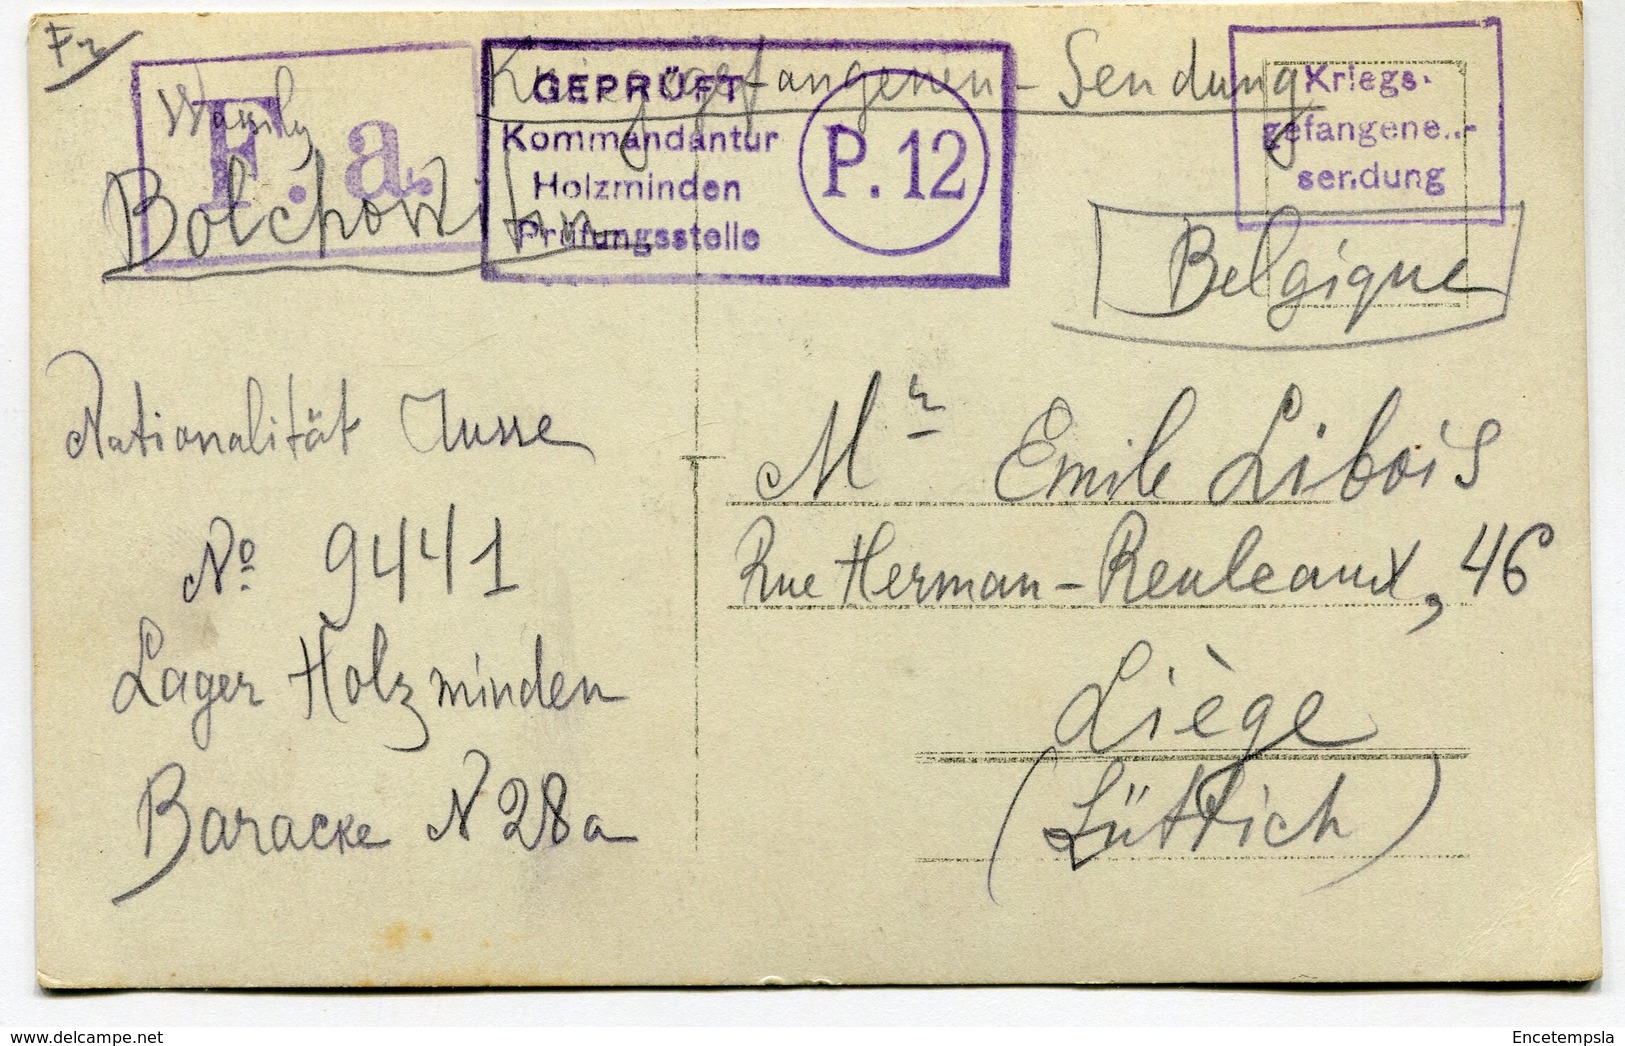 Kriegsgefangenen-Sendung
F. a.
Wassily
GEPRÜFT
Kommandantur
Holzminden
Prüfungsstelle
P. 12
Kriegs-
gefangenen-
sendung
Belgique
Nationalität Russe
Nº 9441
Lager Holzminden
Baracke N 28a
Mr Emile Libois
Rue Herman-Reuleaux, 46
Liège
(Lüttich)
Encetempsla